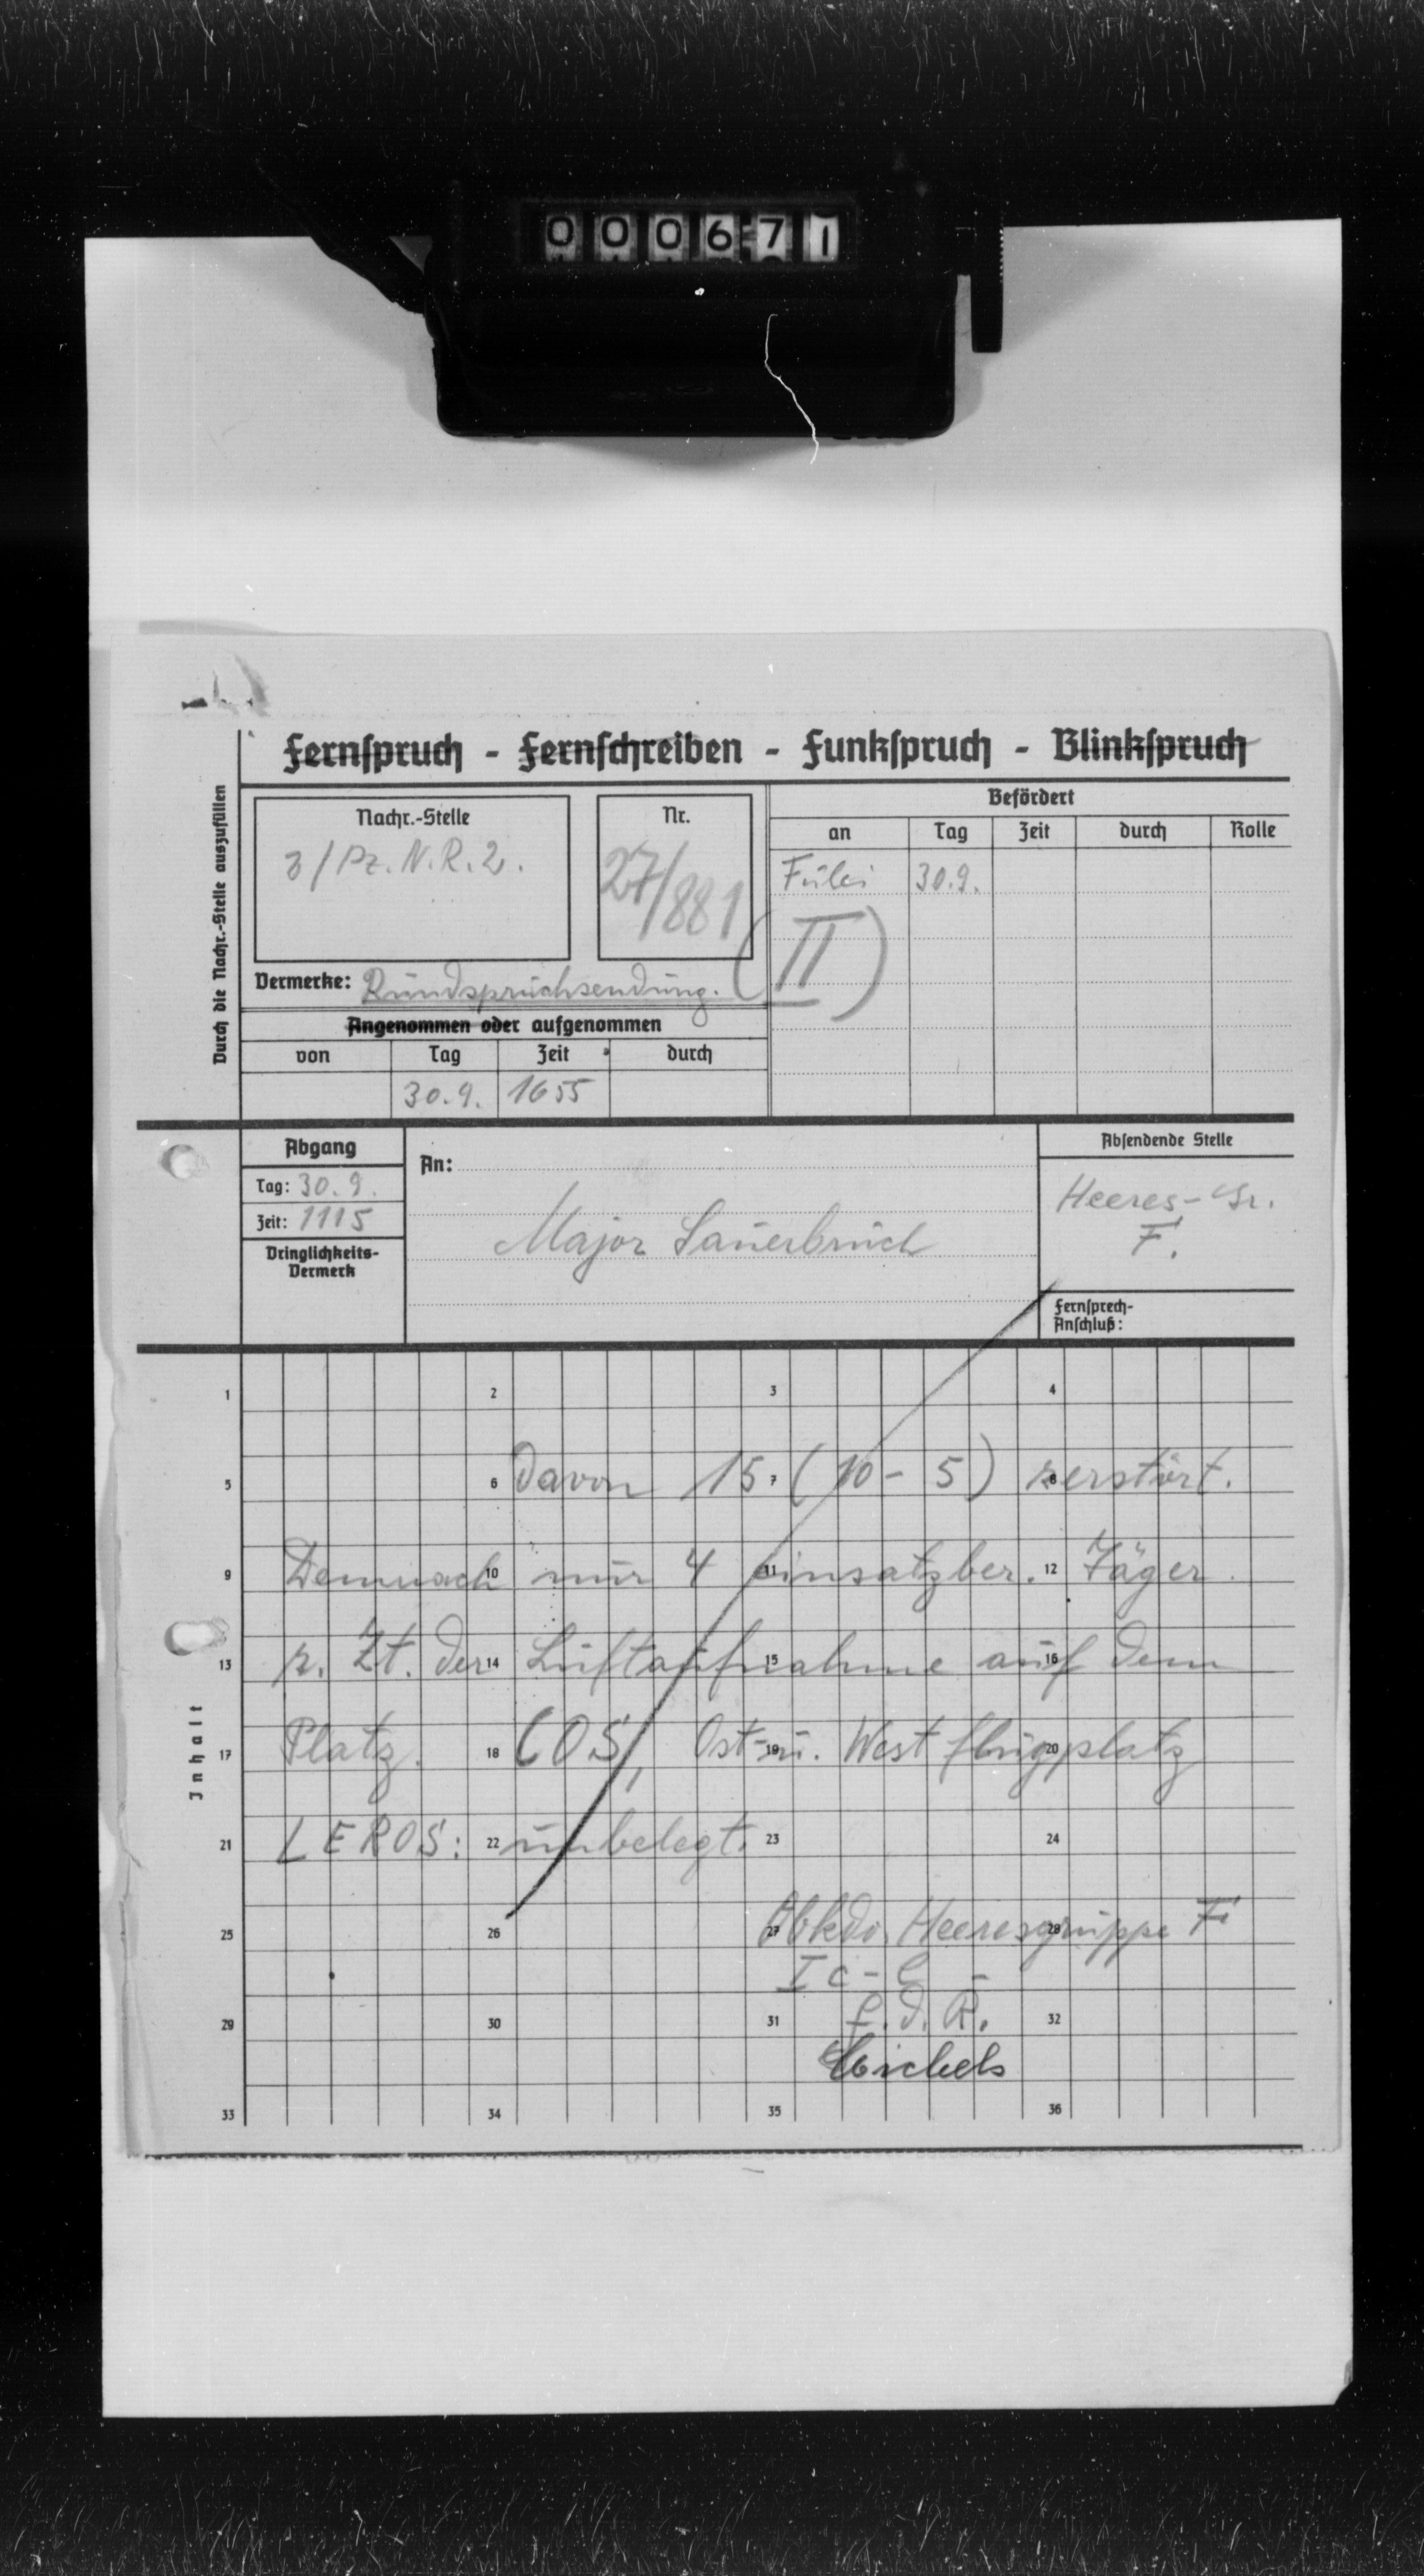 000671
Fernspruch - Fernschreiben - Funkspruch - Blinkspruch
Durch die Nachr.-Stelle auszufüllen
Nachr.-Stelle
3/Pz. N. R. 2.
Nr.
27/881
Befördert
an Tag Zeit durch Rolle
30.9.
(II)
Vermerke: Rundspruchsendung.
Angenommen oder aufgenommen
von Tag Zeit durch
30.9. 1655
Abgang
Tag: 30.9.
Zeit: 1115
Dringlichkeits-
Vermerk
An:
Major Sauerbruch
Absendende Stelle
Heeres-Gr.
F.
Fernsprech-
Anschluß:
Inhalt
1 2 3 4
5 6 7 8
davon 15 (10 - 5) zerstört.
9 10 11 12
Demnach nur 4 einsatzber. Jäger
13 14 15 16
z. Zt. der Luftaufnahme auf dem
17 18 19 20
Platz. COS, Ost- u. West flugplatz
21 22 23 24
LEROS: unbelegt.
25 26 27 28
Obkdo. Heeresgruppe F
Ic -
29 30 31 32
f. d. R.
33 34 35 36